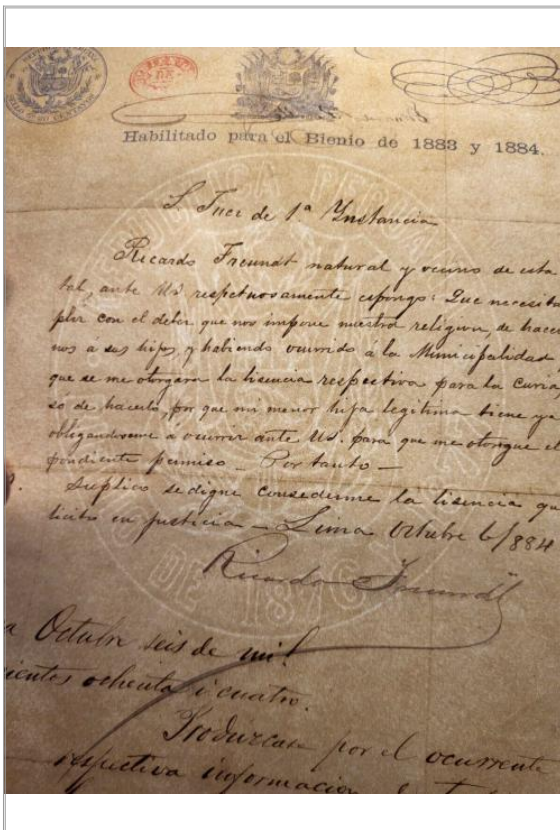 Habilitado para el Bienio de 1883 y 1884.
S. Juez de 1ª Ynstancia
Ricardo Freundt natural y vecino de esta
tal, ante US. respetuosamente espongo: Que necesito
plir con el deber que nos impone nuestra religion, de hacer
nos a sus hijos, y habiendo ocurrido á la Municipalidad,
que se me otorgara la lisencia respectiva para la Curia
só de hacerlo, por que mi menor hija legitima tiene ya
obligandoseme a ocurrir ante US. para que me otorgue el
pondiente permiso — Por tanto —
Suplico se digne consederme la lisencia que
licito en justicia — Lima Octubre 6/884
Ricardo Freundt
Octubre seis de mil
cientos ochenta i cuatro.
Produzcase por el ocurrente
respectiva informacion